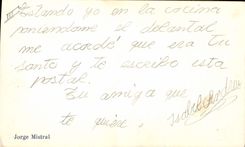 Estando yo en la cocina
poniendome el delantal
me acordé que era tu
santo y te escribo esta
postal.
Tu amiga que
te quiere.
Jorge Mistral